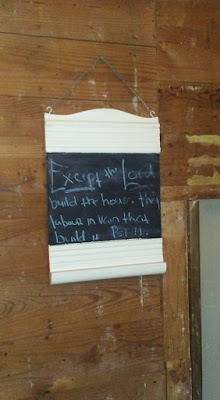 Except the Lord
build the house, they
labour in vain that
build it Ps